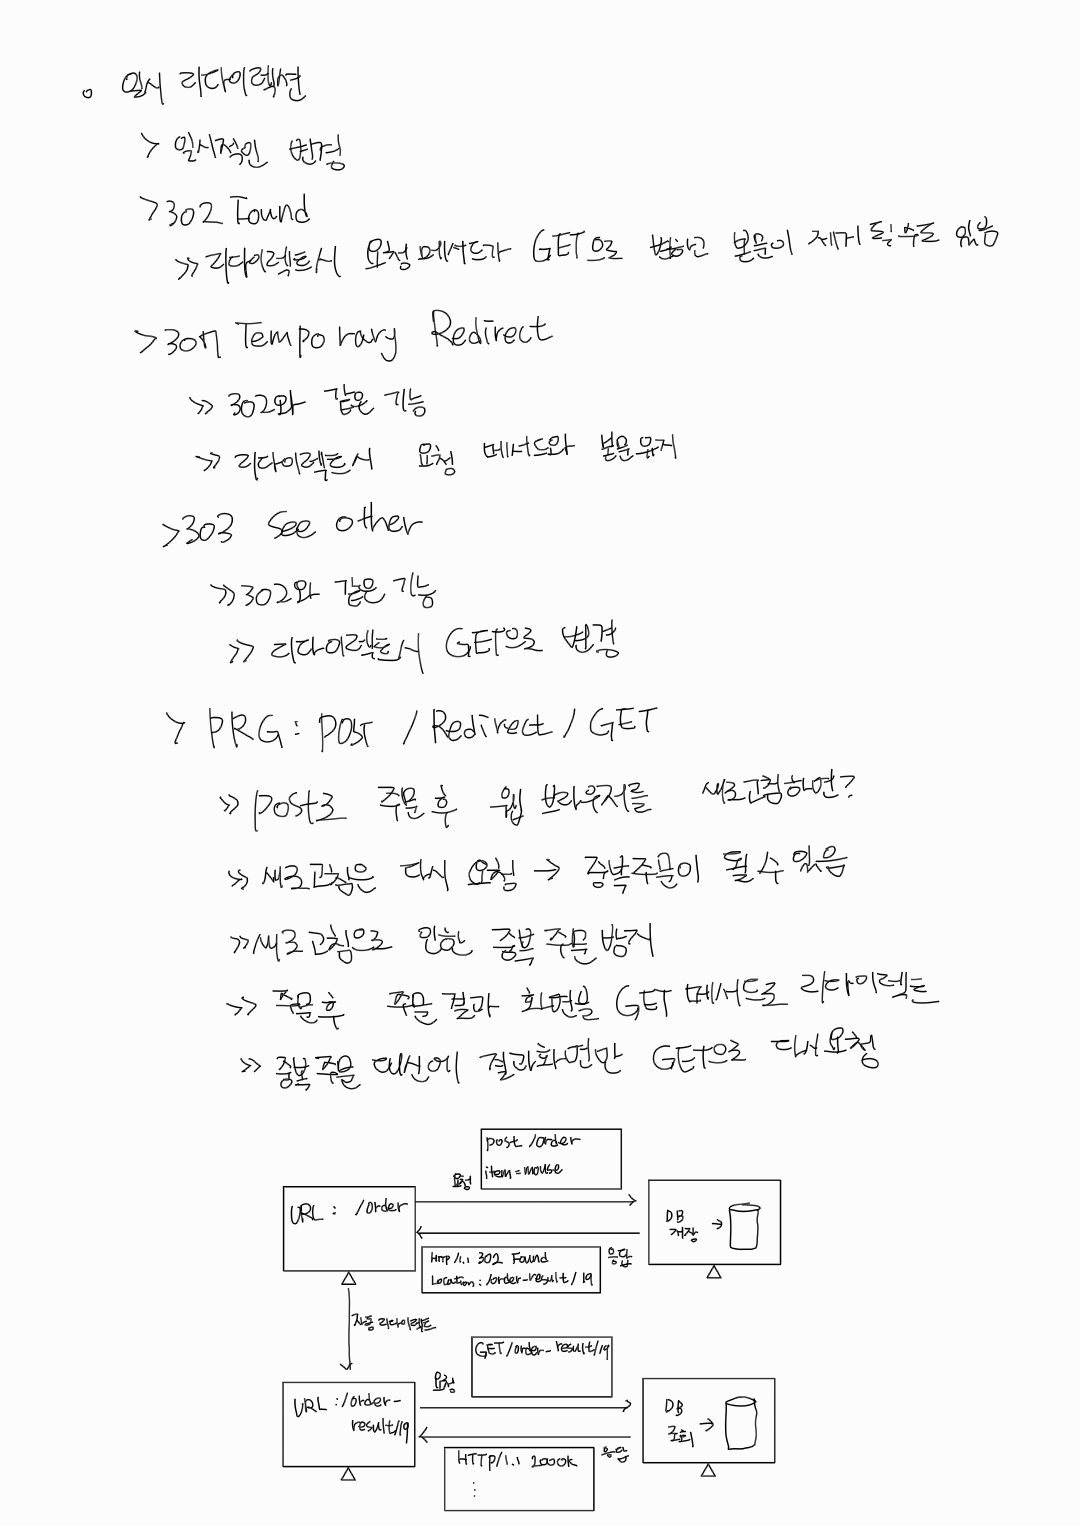 일시 리다이렉션
> 일시적인 변경
> 302 Found
>> 리다이렉트시 요청 메서드가 GET으로 변하고 본문이 제거 될 수도 있음
> 307 Temporary Redirect
>> 302와 같은 기능
>> 리다이렉트시 요청 메서드와 본문유지
> 303 See other
>> 302와 같은 기능
>> 리다이렉트시 GET으로 변경
> PRG : POST / Redirect / GET
>> post로 주문 후 웹 브라우저를 새로고침하면?
>> 새로고침은 다시 요청 → 중복주문이 될 수 있음
>> 새로고침으로 인한 중복 주문 방지
>> 주문 후 주문 결과 화면을 GET 메서드로 리다이렉트
>> 중복 주문 대신에 결과화면만 GET으로 다시 요청
post /order
item = mouse
요청
URL : /order
DB
저장 →
응답
Http /1.1 302 Found
Location : /order-result/19
자동 리다이렉트
GET /order-result/19
요청
URL : /order-
result/19
DB
조회 →
응답
HTTP/1.1 200 OK
⋮